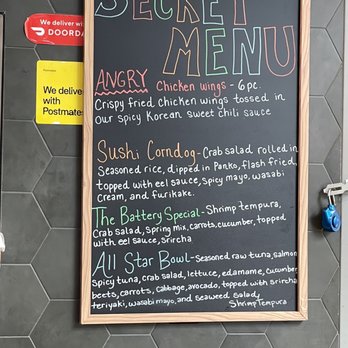 We deliver with
DOORDA
We deliver
with
Postmate
SECRET
MENU
ANGRY Chicken wings - 6 pc.
Crispy fried chicken wings tossed in
our spicy Korean sweet chili sauce
Sushi Corndog - Crab salad rolled in
Seasoned rice, dipped in Panko, flash fried,
topped with eel sauce, spicy mayo, wasabi
Cream, and furikake.
The Battery Special - Shrimp tempura,
Crab salad, Spring mix, carrots, cucumber, topped
with eel sauce, srircha
All Star Bowl - Seasoned raw tuna, salmon
Spicy tuna, crab salad, lettuce, edamame, cucumber
beets, carrots, cabbage, avocado, topped with sriracha
teriyaki, wasabi mayo, and seaweed salad,
Shrimp Tempura